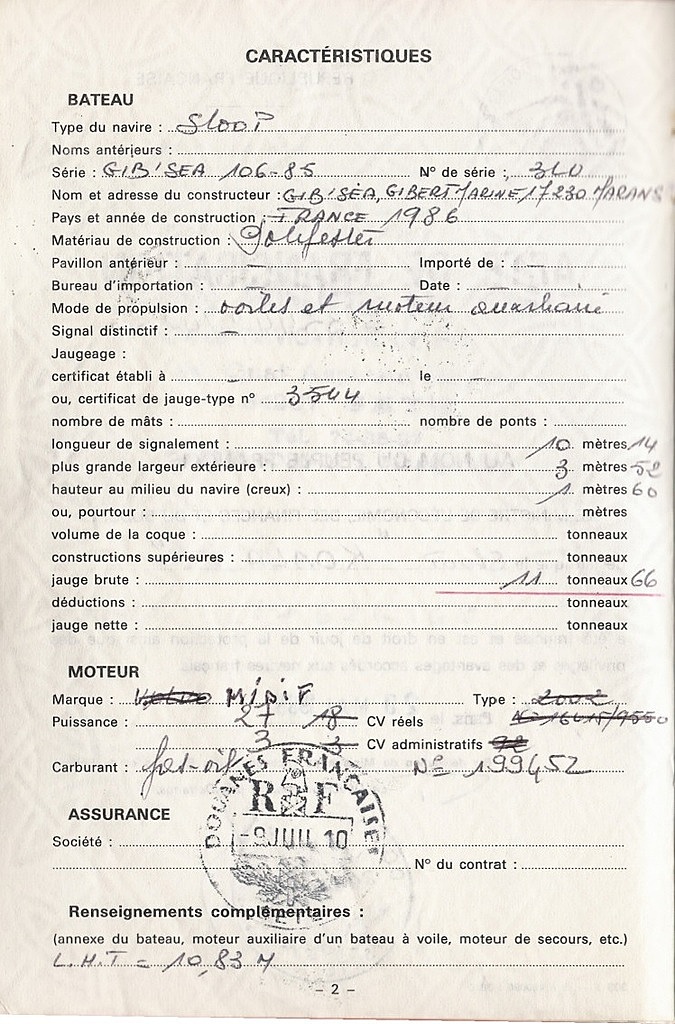 CARACTÉRISTIQUES
BATEAU
Type du navire : SLOOP
Noms antérieurs :
Série : GIB'SEA 106-85 N° de série : 340
Nom et adresse du constructeur : GIB'SEA, GIBERT MARINE 17230 MARANS
Pays et année de construction : FRANCE 1986
Matériau de construction : Polyester
Pavillon antérieur : — Importé de : —
Bureau d'importation : — Date : —
Mode de propulsion : voiles et moteur
Signal distinctif : —
Jaugeage :
certificat établi à — le —
ou, certificat de jauge-type n° 3544
nombre de mâts : nombre de ponts :
longueur de signalement : 10 mètres 14
plus grande largeur extérieure : 3 mètres 52
hauteur au milieu du navire (creux) : 1 mètres 60
ou, pourtour : mètres
volume de la coque : tonneaux
constructions supérieures : tonneaux
jauge brute : 11 tonneaux 66
déductions : tonneaux
jauge nette : tonneaux
MOTEUR
Marque : VOLVO MIDIF Type : 2002
Puissance : 27 18 CV réels
3 3 CV administratifs
Carburant : gas-oil N° 199452
DOUANES FRANÇAISES
RF
-9 JUIL 10
ASSURANCE
Société :
N° du contrat :
Renseignements complémentaires :
(annexe du bateau, moteur auxiliaire d'un bateau à voile, moteur de secours, etc.)
L.H.T = 10,83 M
– 2 –